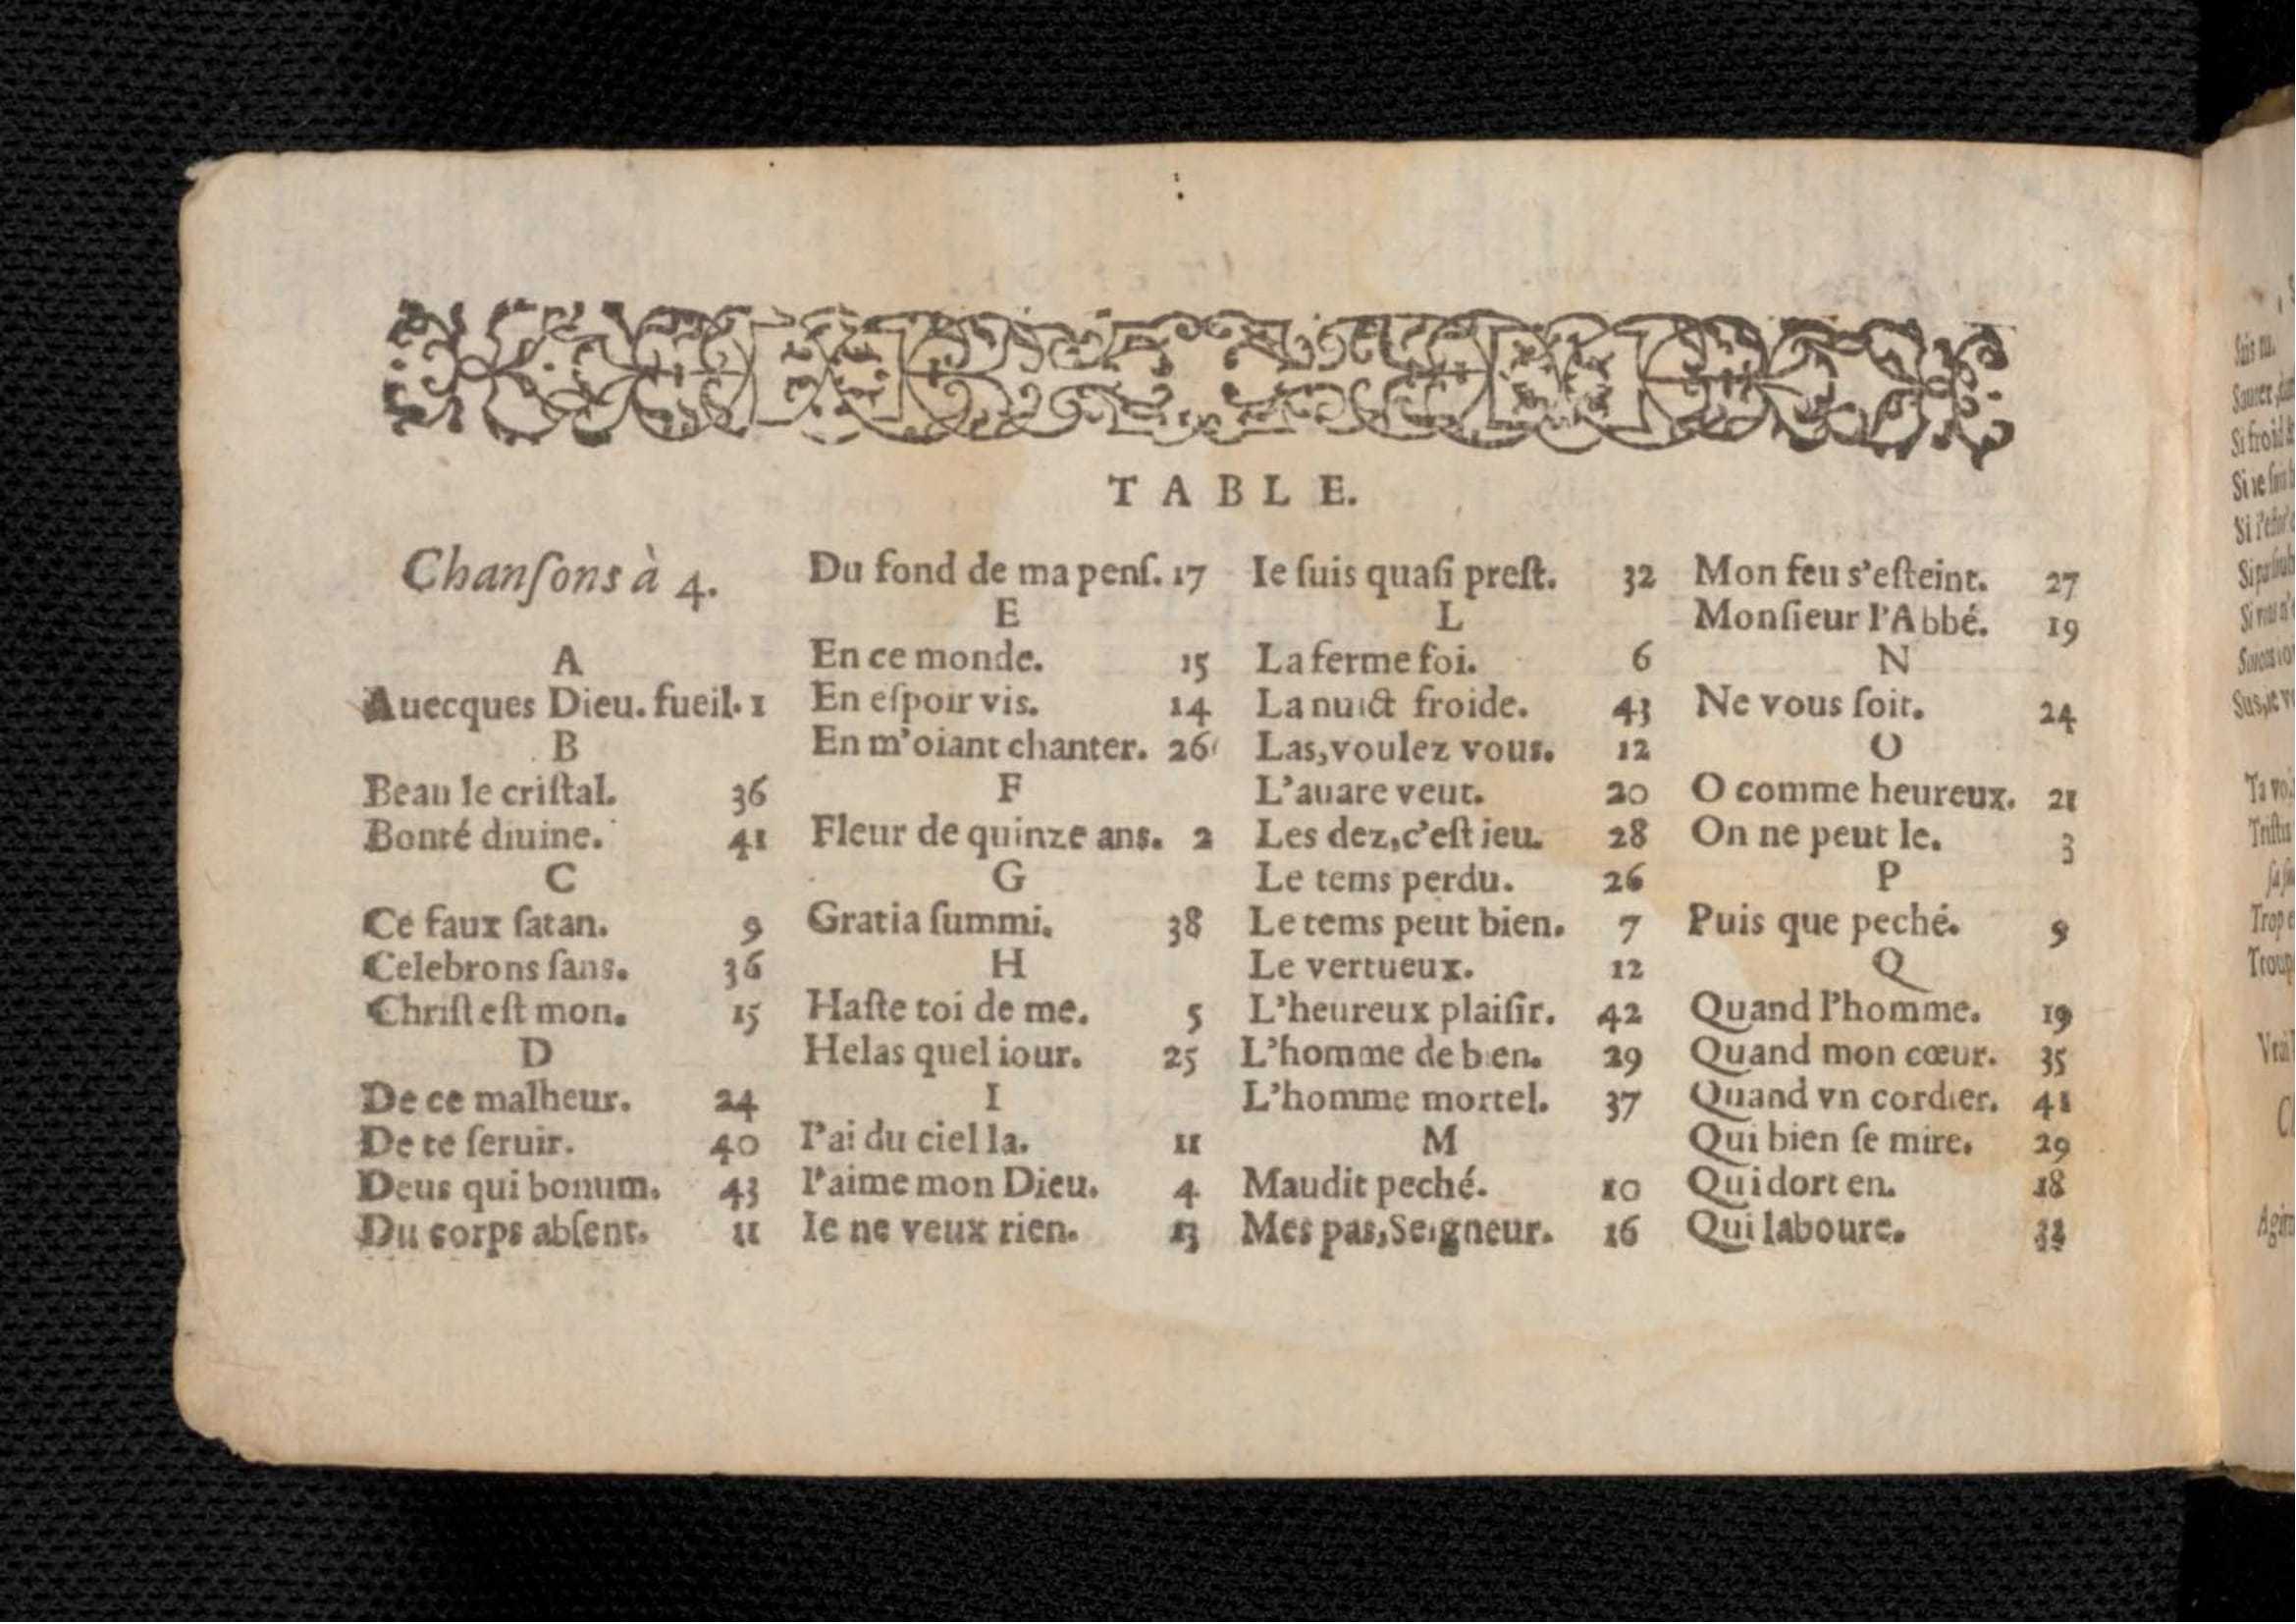 TABLE.
Chanſons à 4.
A
Auecques Dieu. fueil. 1
B
Beau le criſtal. 36
Bonté diuine. 41
C
Ce faux ſatan. 9
Celebrons ſans. 36
Chriſt eſt mon. 15
D
De ce malheur. 24
De te ſeruir. 40
Deus qui bonum. 43
Du corps abſent. 11
Du fond de ma penſ. 17
E
En ce monde. 15
En eſpoir vis. 14
En m'oiant chanter. 26
F
Fleur de quinze ans. 2
G
Gratia ſummi. 38
H
Haſte toi de me. 5
Helas quel iour. 25
I
I'ai du ciel la. 11
I'aime mon Dieu. 4
Ie ne veux rien. 13
Ie ſuis quaſi preſt. 32
L
La ferme foi. 6
La nuict froide. 43
Las, voulez vous. 12
L'auare veut. 20
Les dez, c'eſt ieu. 28
Le tems perdu. 26
Le tems peut bien. 7
Le vertueux. 12
L'heureux plaiſir. 42
L'homme de bien. 29
L'homme mortel. 37
M
Maudit peché. 10
Mes pas, Seigneur. 16
Mon feu s'eſteint. 27
Monſieur l'Abbé. 19
N
Ne vous ſoit. 24
O
O comme heureux. 21
On ne peut le. 3
P
Puis que peché. 9
Q
Quand l'homme. 19
Quand mon cœur. 35
Quand vn cordier. 41
Qui bien ſe mire. 29
Qui dort en. 18
Qui laboure.